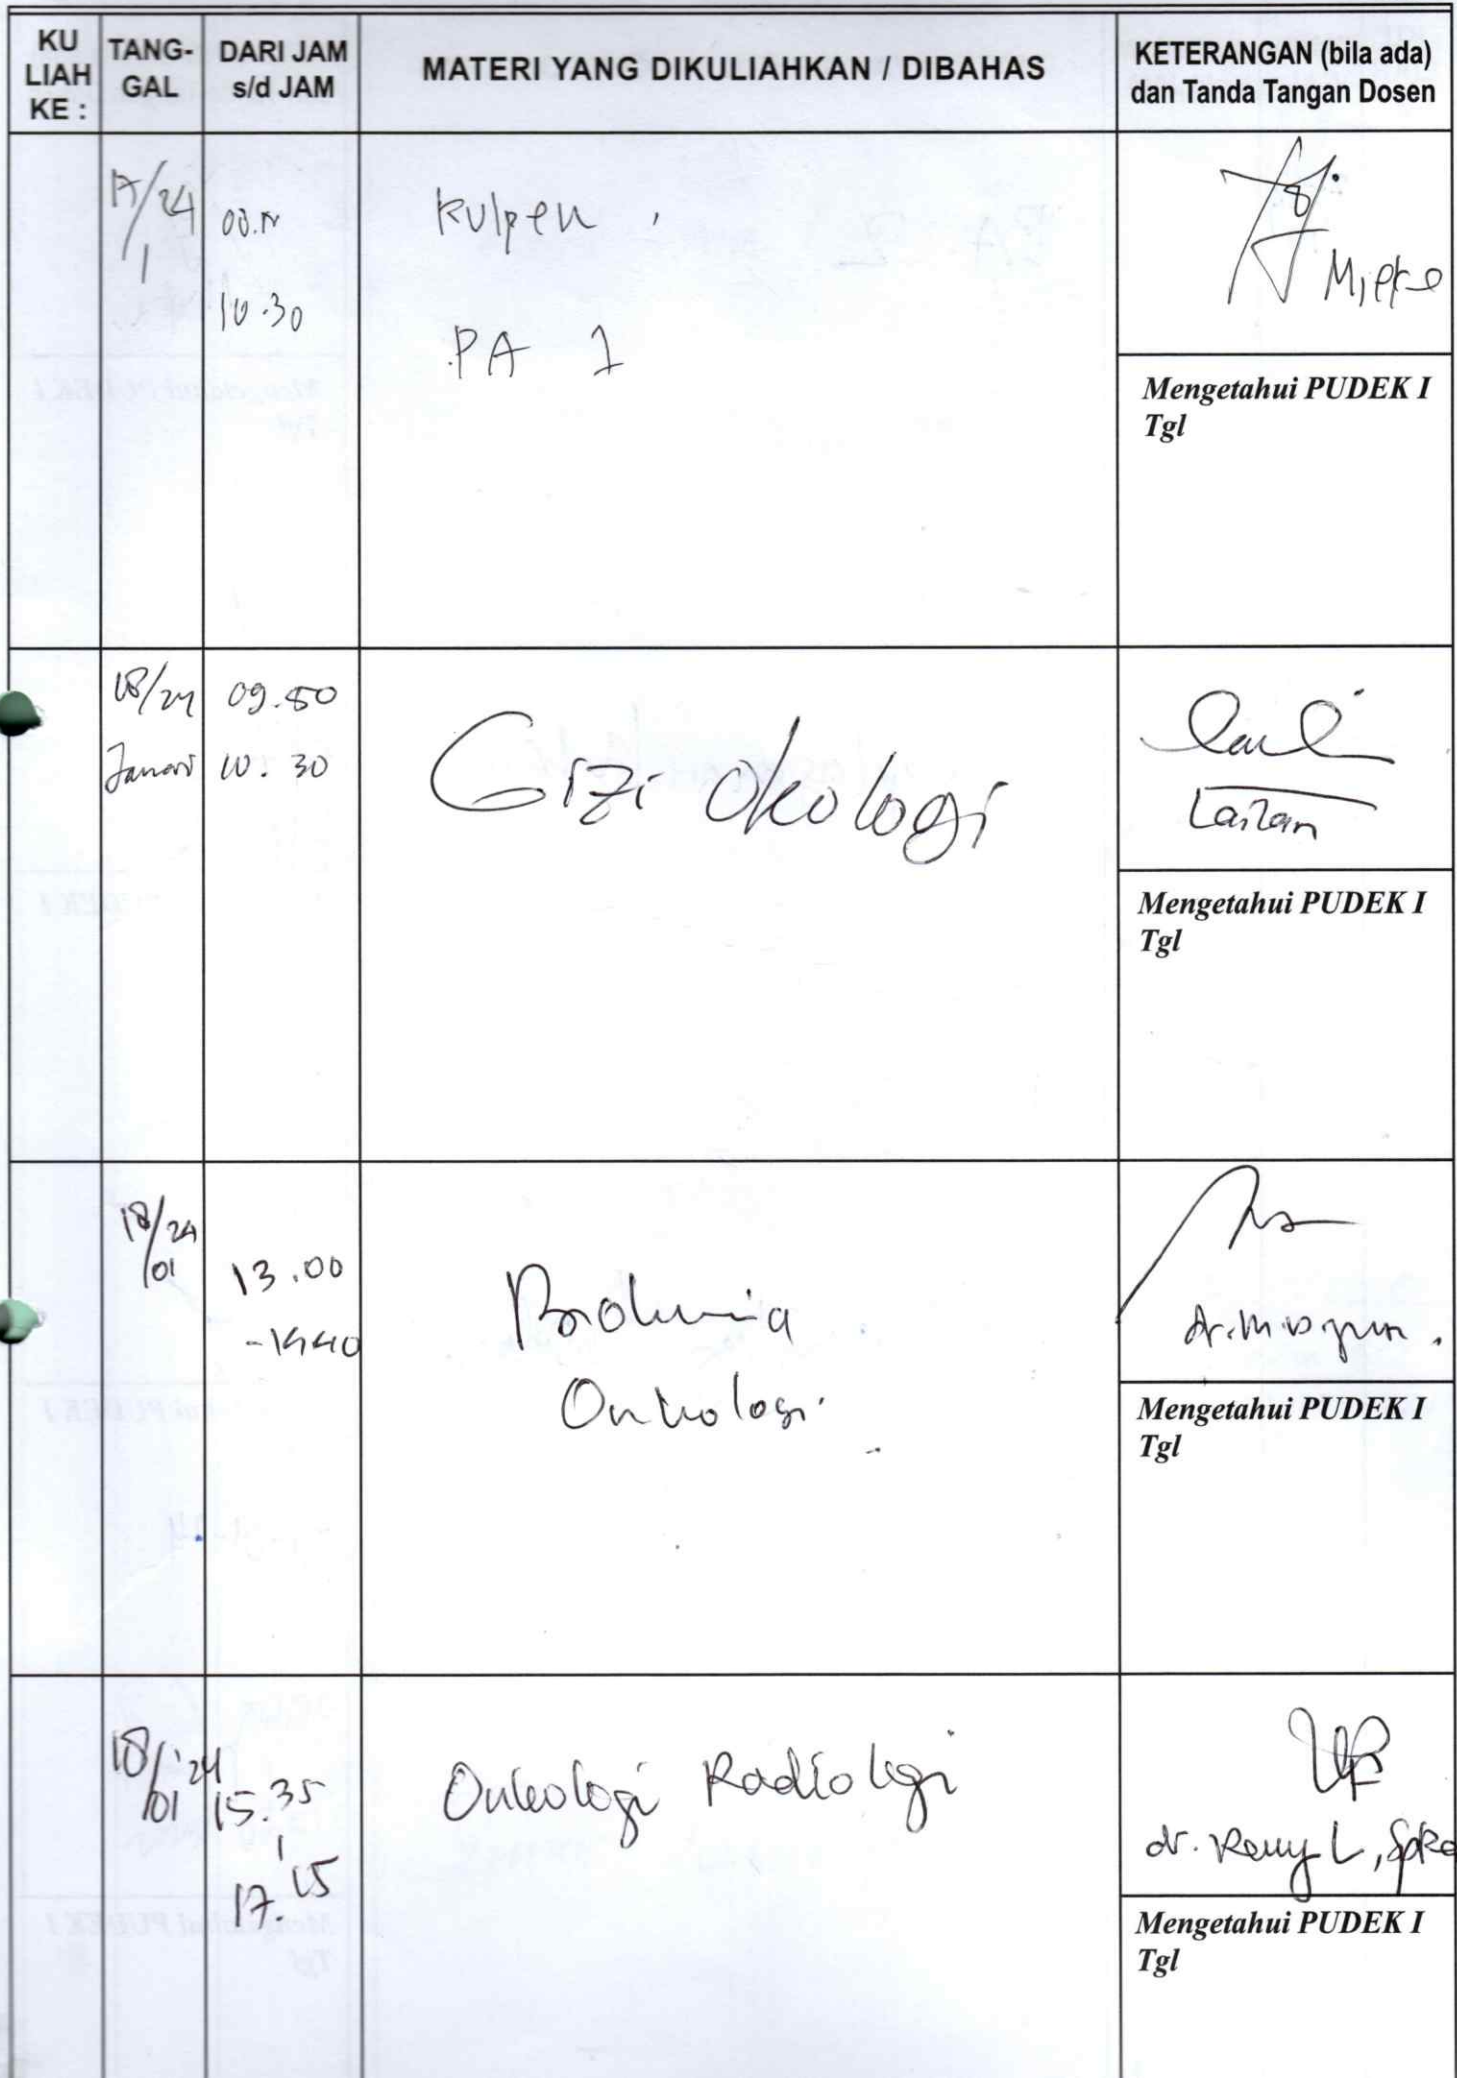 KU LIAH KE :
TANG- GAL
DARI JAM s/d JAM
MATERI YANG DIKULIAHKAN / DIBAHAS
KETERANGAN (bila ada) dan Tanda Tangan Dosen
17/24
1
10.30
Kulpen
PA 1
Mengetahui PUDEK I
Tgl
18/24
Januari
09.50
10.30
Gizi Okologi
Lailan
Mengetahui PUDEK I
Tgl
18/24
/01
13.00
- 1440
Biokimia
Onkologi
Mengetahui PUDEK I
Tgl
18/'24
/01
15.35
17.15
Onkologi Radiologi
dr. Keny L, SpRa
Mengetahui PUDEK I
Tgl